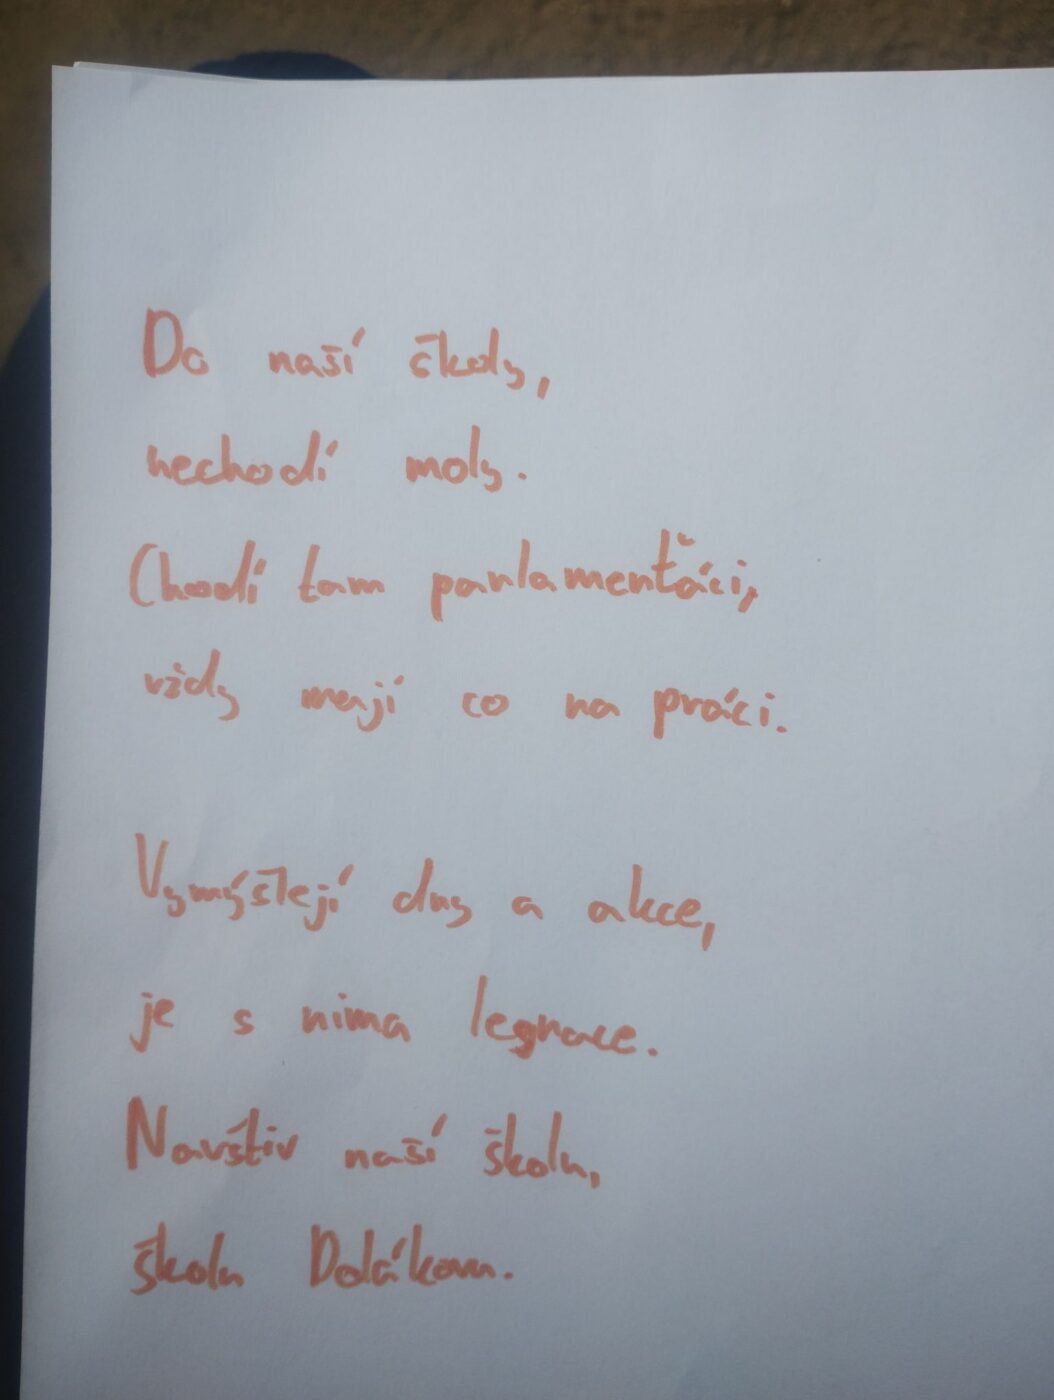 Do naší školy,
nechodí moly.
Chodí tam parlamenťáci,
vždy mají co na práci.
Vymýšlejí dny a akce,
je s nima legrace.
Navštiv naší školu,
školu Dolákovu.